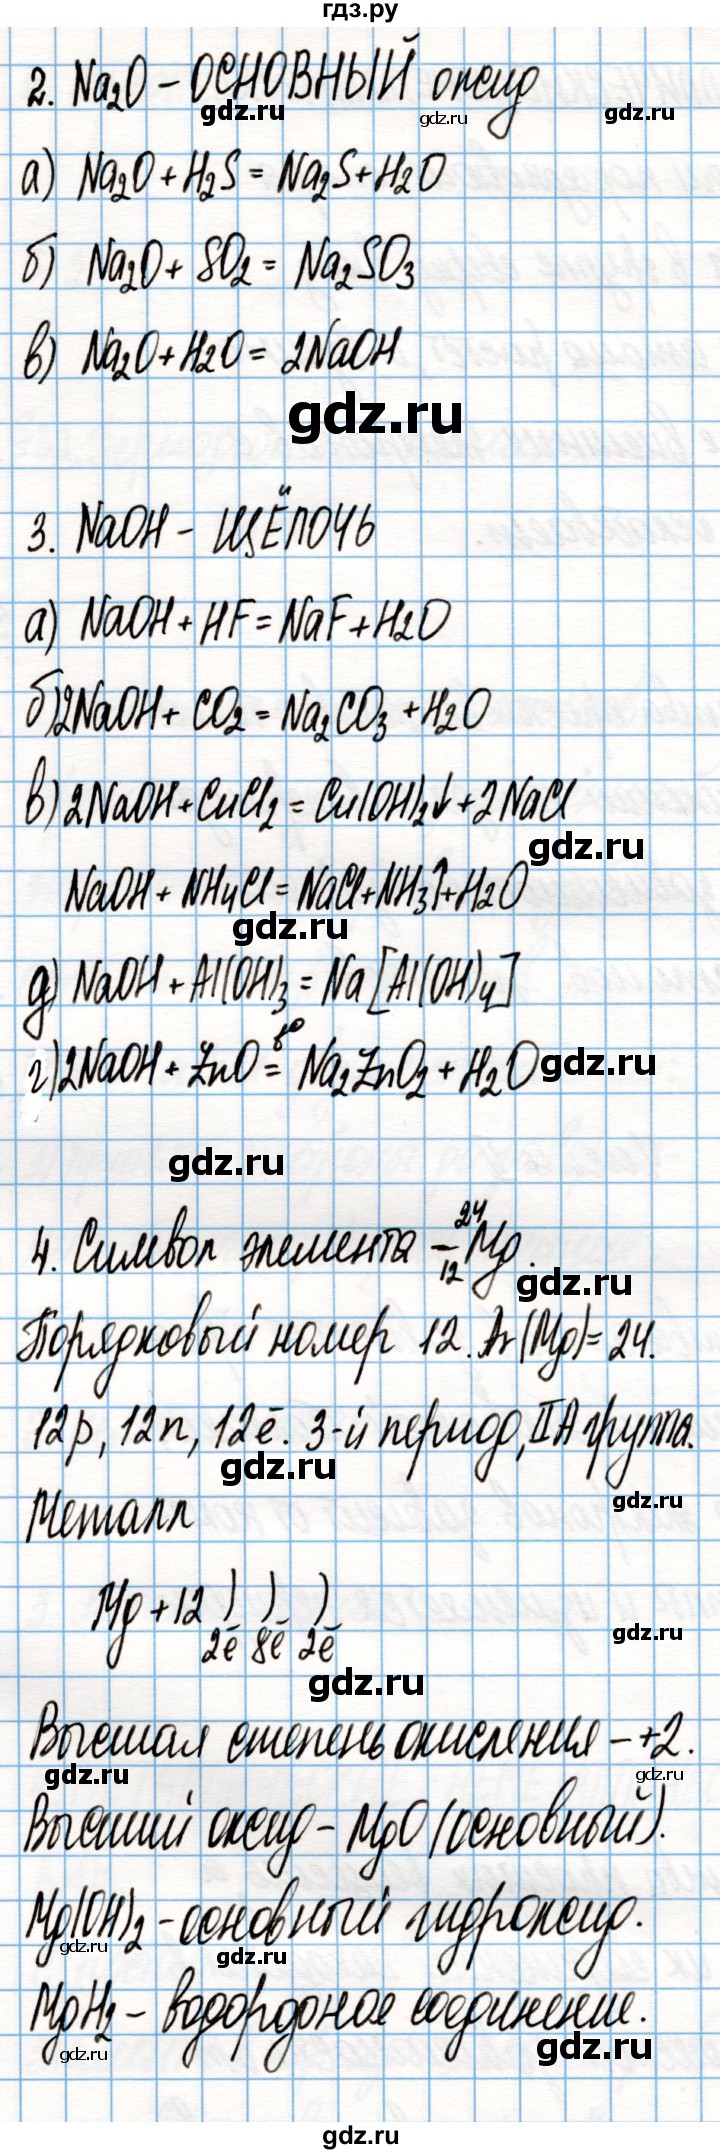 гдз.ру
2. Na₂O – ОСНОВНЫЙ оксид
gdz.ru gdz.ru gdz.ru
а) Na₂O + H₂S = Na₂S + H₂O
б) Na₂O + SO₂ = Na₂SO₃
в) Na₂O + H₂O = 2NaOH
gdz.ru
3. NaOH – ЩЁЛОЧЬ
а) NaOH + HF = NaF + H₂O
б) 2NaOH + CO₂ = Na₂CO₃ + H₂O
в) 2NaOH + CuCl₂ = Cu(OH)₂↓ + 2NaCl
gdz.ru
NaOH + NH₄Cl = NaCl + NH₃↑ + H₂O
gdz.ru
д) NaOH + Al(OH)₃ = Na[Al(OH)₄]
г) 2NaOH + ZnO =(t°) Na₂ZnO₂ + H₂O
gdz.ru
gdz.ru
4. Символ элемента – ²⁴₁₂Mg.
gdz.ru
Порядковый номер 12. Ar(Mg) = 24.
12p, 12n, 12ē. 3-й период, IIA группа.
gdz.ru
Металл
gdz.ru
Mg +12 ) ) )
2ē 8ē 2ē
gdz.ru
gdz.ru
Высшая степень окисления – +2.
gdz.ru gdz.ru
Высший оксид – MgO (основный).
Mg(OH)₂ – основный гидроксид.
gdz.ru gdz.ru
MgH₂ – водордоное соединение.
gdz.ru gdz.ru
гдз.ру